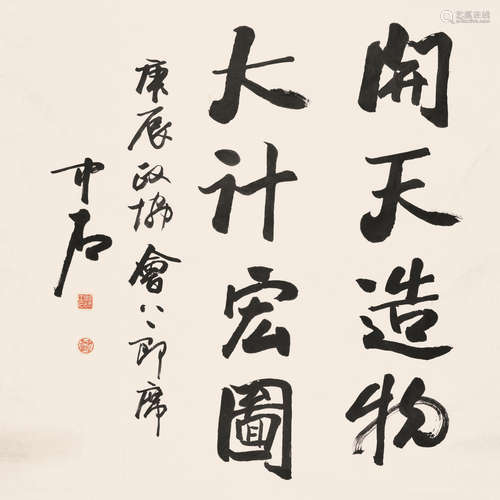 開天造物
大計宏圖
庚辰政協會八八郎席
中石